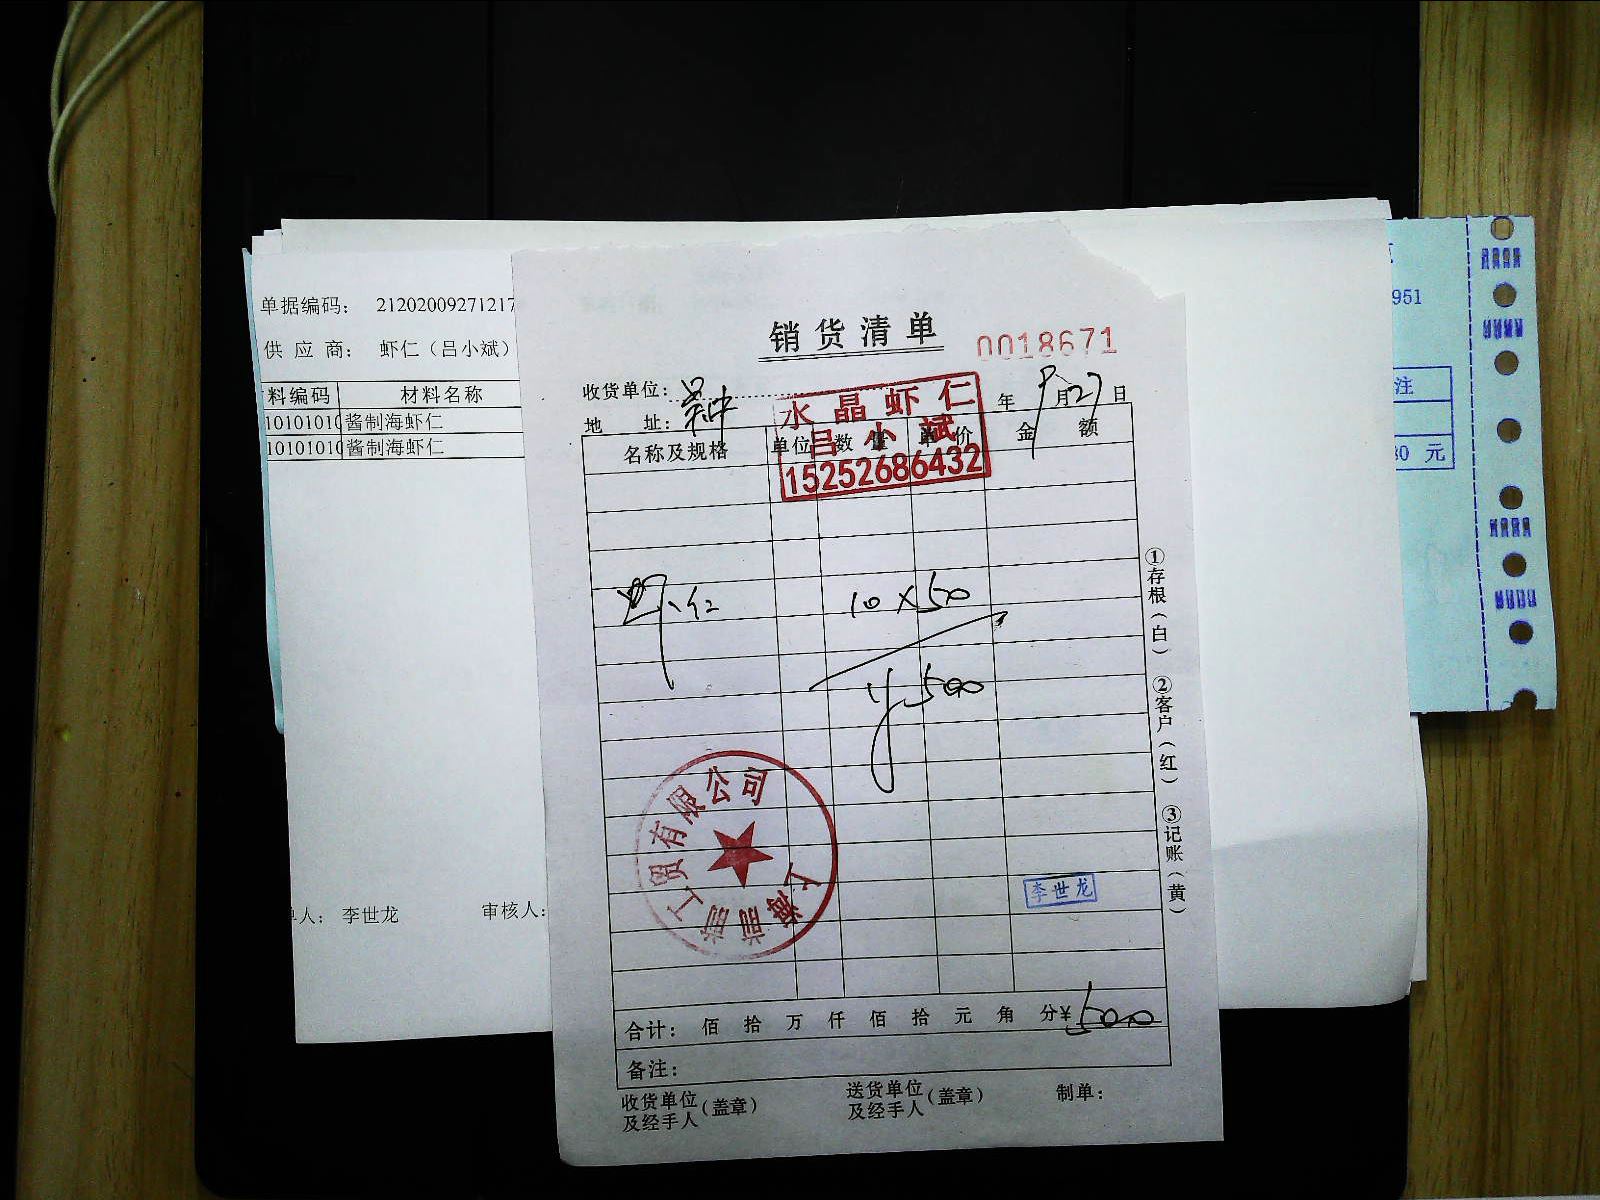 单据编码： 21202009271217
供 应 商： 虾仁（吕小斌）
料编码 材料名称
10101010 酱制海虾仁
10101010 酱制海虾仁
单人： 李世龙 审核人：
销货清单
0018671
收货单位：
地 址：
年 9月27日
水晶虾仁
吕小斌
15252686432
名称及规格 单位 数量 单价 金额
虾仁 10×50
¥500
上海
工贸有限公司
李世龙
合计： 佰 拾 万 仟 佰 拾 元 角 分¥500
备注：
收货单位及经手人（盖章） 送货单位及经手人（盖章） 制单：
①存根（白） ②客户（红） ③记账（黄）
951
注
80 元